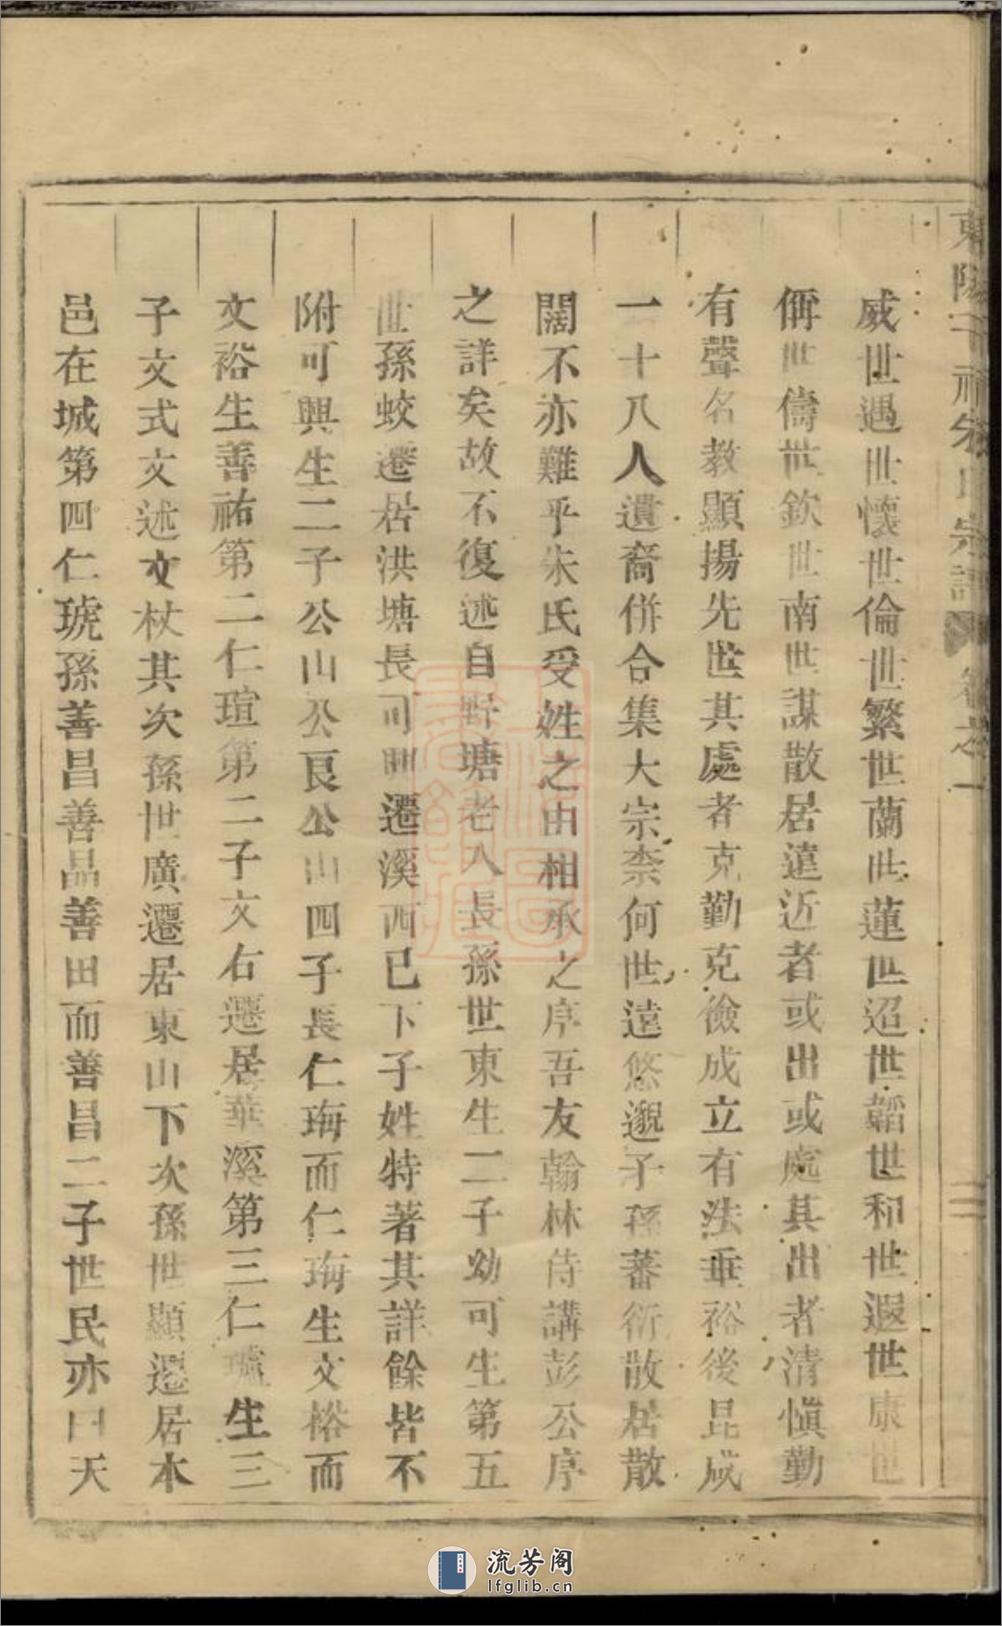 東陽 朱氏宗譜 卷之一
威世遇世懷世倫世繁世蘭世蓮世迢世韜世和世遐世康世
偁世儔世欽世南世謀散居遠近者或出或處其出者清慎勤
有聲名教顯揚先世其處者克勤克儉成立有法垂裕後昆咸
一十八人遺裔併合集大宗柰何世遠悠邈子孫蕃衍散居散
闊不亦難乎朱氏受姓之由相承之序吾友翰林侍講彭公序
之詳矣故不復述自野塘老人長孫世東生二子幼可生第五
世孫蛟遷居洪塘長可 遷溪西已下子姓特著其詳餘皆不
附可興生二子公山公良公山四子長仁珻而仁珻生文裕而
文裕生善祐第二仁瑄第二子文右遷居華溪第三仁 生三
子文式文述文杖其次孫世廣遷居東山下次孫世顯遷居本
邑在城第四仁琥孫善昌善品善田而善昌二子世民亦曰天
流芳阁
lfglib.cn